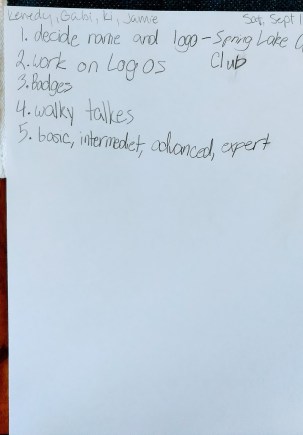 Kenedy, Gabi, Ki, Jamie Sat, Sept 1
1. decide name and logo - Spring Lake C
Club
2. work on Logos
3. Badges
4. walky talkes
5. basic, intermediet, advanced, expert